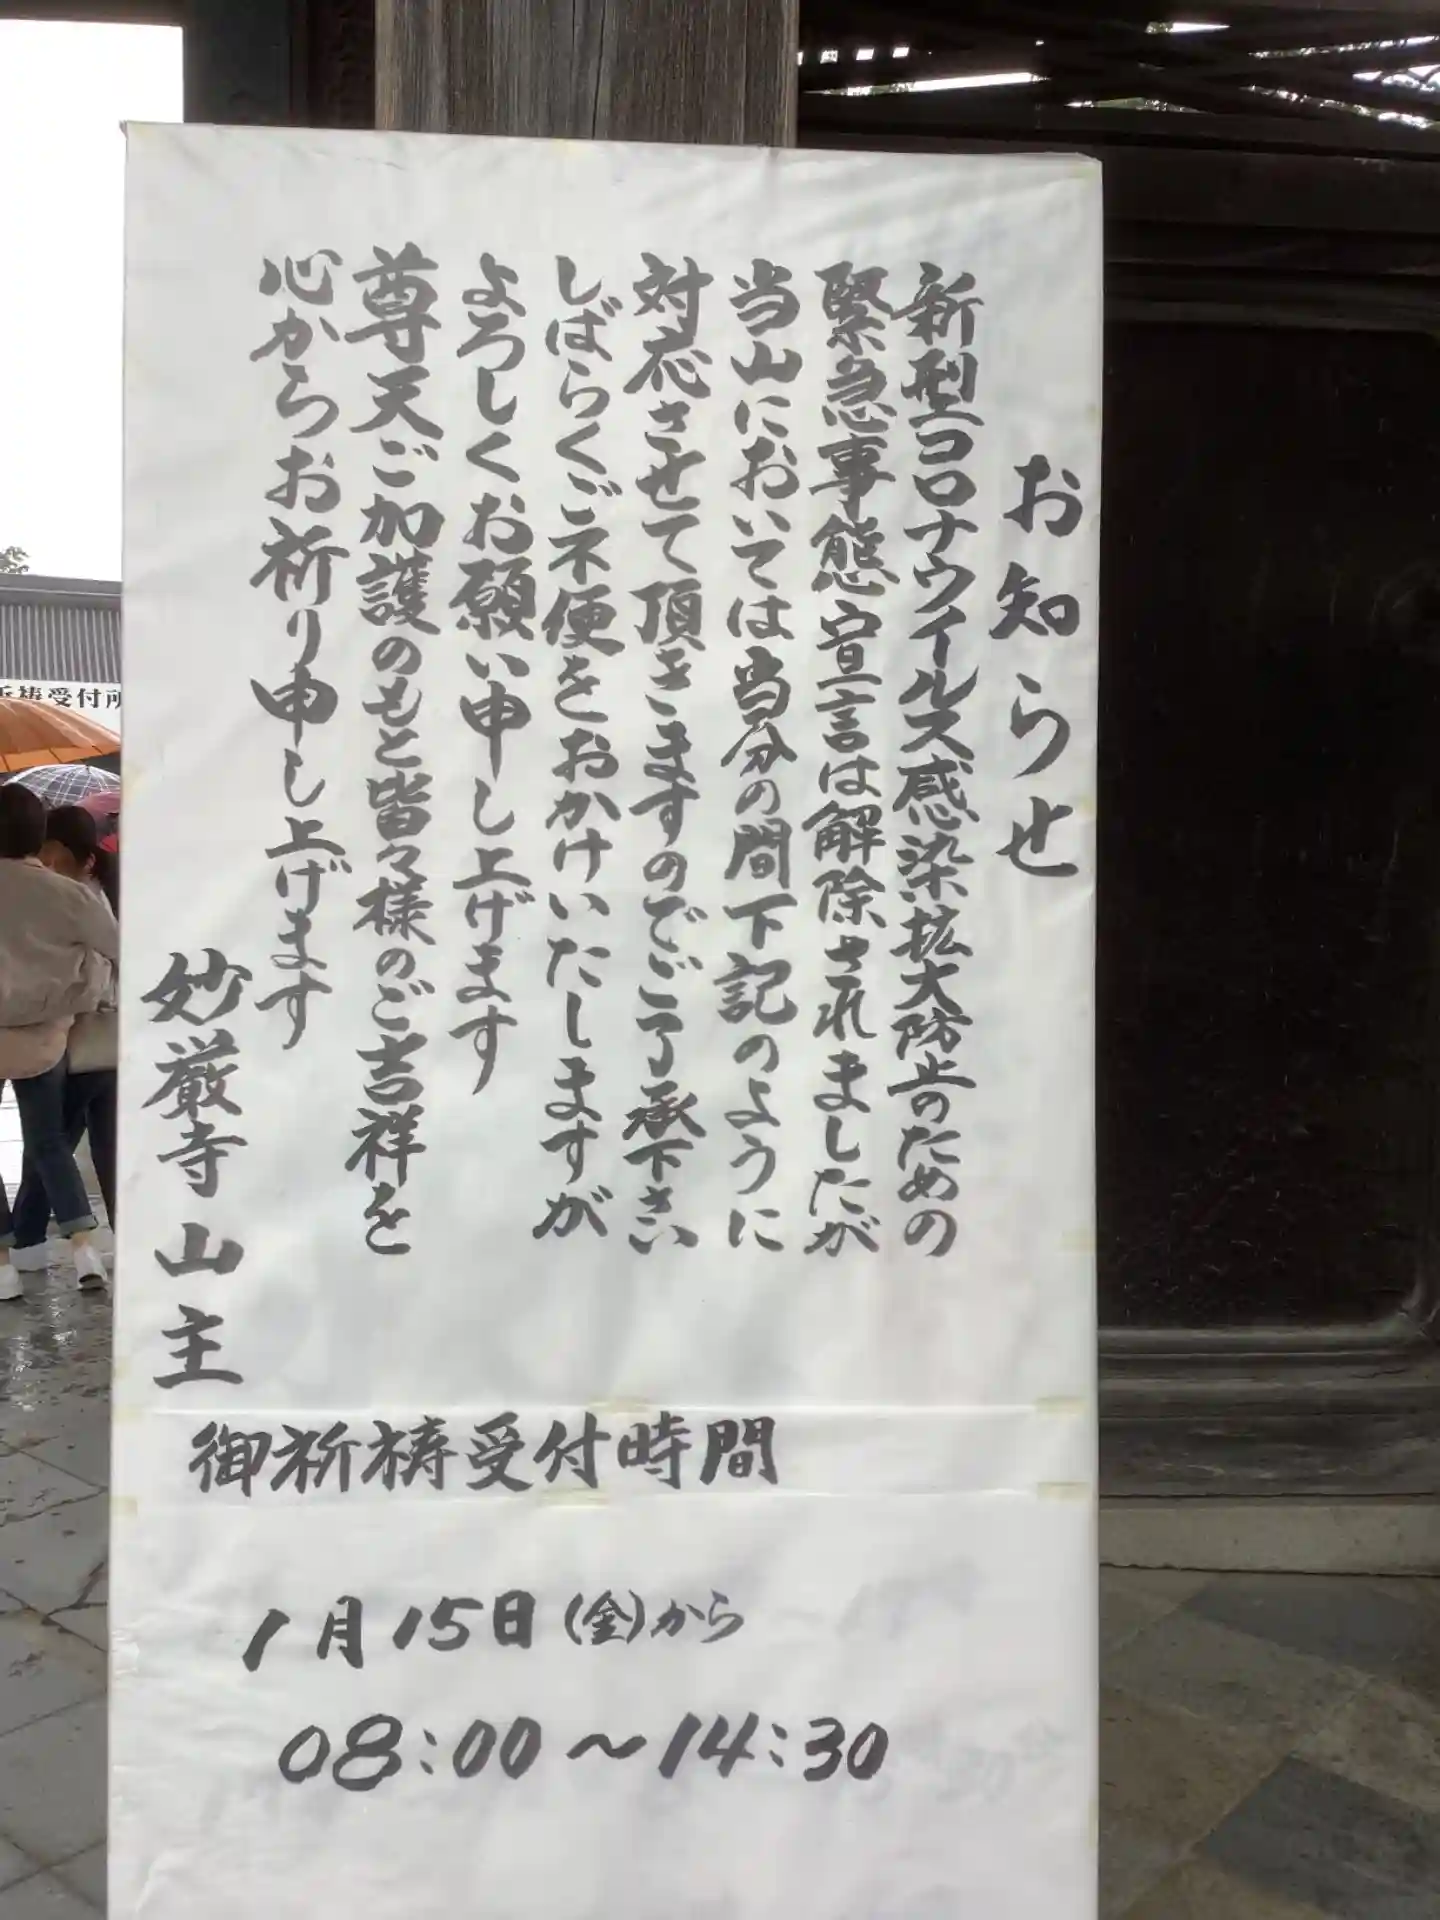 お知らせ
新型コロナウイルス感染拡大防止のための
緊急事態宣言は解除されましたが
当山においては当分の間下記のように
対応させて頂きますのでご了承下さい
しばらくご不便をおかけいたしますが
よろしくお願い申し上げます
尊天ご加護のもと皆々様のご吉祥を
心からお祈り申し上げます
妙厳寺山主
御祈祷受付時間
1月15日(金)から
08:00～14:30
祈祷受付所